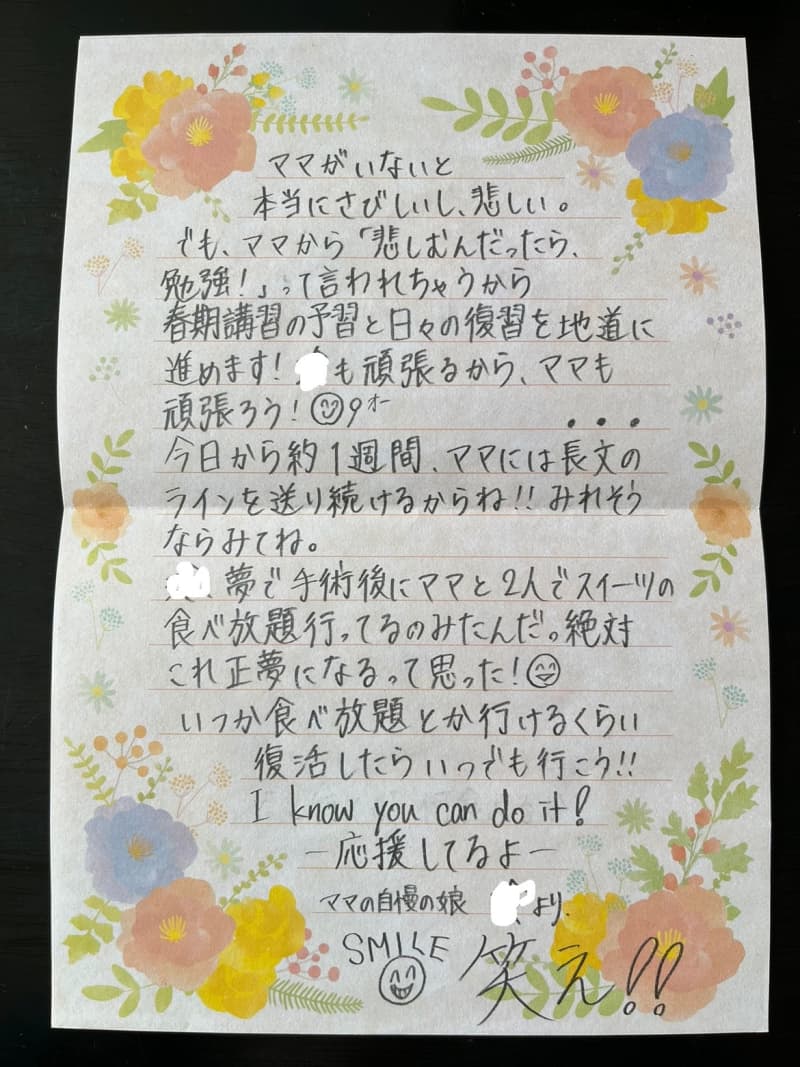 ママがいないと
本当にさびしいし、悲しい。
でも、ママから「悲しむんだったら、
勉強！」って言われちゃうから
春期講習の予習と日々の復習を地道に
進めます！ も頑張るから、ママも
頑張ろう！ オー
・・・
今日から約1週間、ママには長文の
ラインを送り続けるからね!! みれそう
ならみてね。
、夢で手術後にママと2人でスイーツの
食べ放題行ってるのみたんだ。絶対
これ正夢になるって思った！
いつか食べ放題とか行けるくらい
復活したらいつでも行こう!!
I know you can do it!
－応援してるよ－
ママの自慢の娘 より.
SMILE 笑え!!